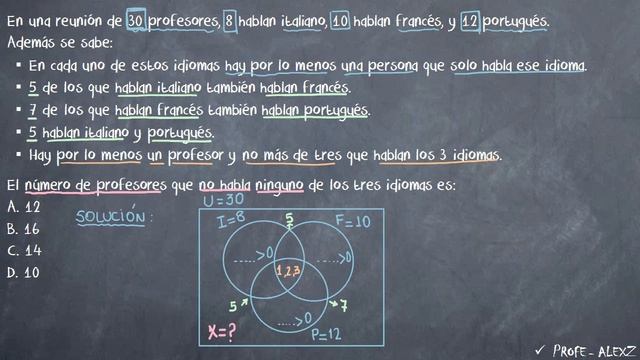 En una reunión de 30 profesores, 8 hablan italiano, 10 hablan francés, y 12 portugués.
Además se sabe:
▪ En cada uno de estos idiomas hay por lo menos una persona que solo habla ese idioma.
▪ 5 de los que hablan italiano también hablan francés.
▪ 7 de los que hablan francés también hablan portugués.
▪ 5 hablan italiano y portugués.
▪ Hay por lo menos un profesor y no más de tres que hablan los 3 idiomas.
El número de profesores que no habla ninguno de los tres idiomas es:
A. 12
B. 16
C. 14
D. 10
SOLUCIÓN:
U=30
I=8
5
F=10
.....>0
.....>0
1,2,3
5
7
.....>0
X=?
P=12
✓ PROFE - ALEXZ